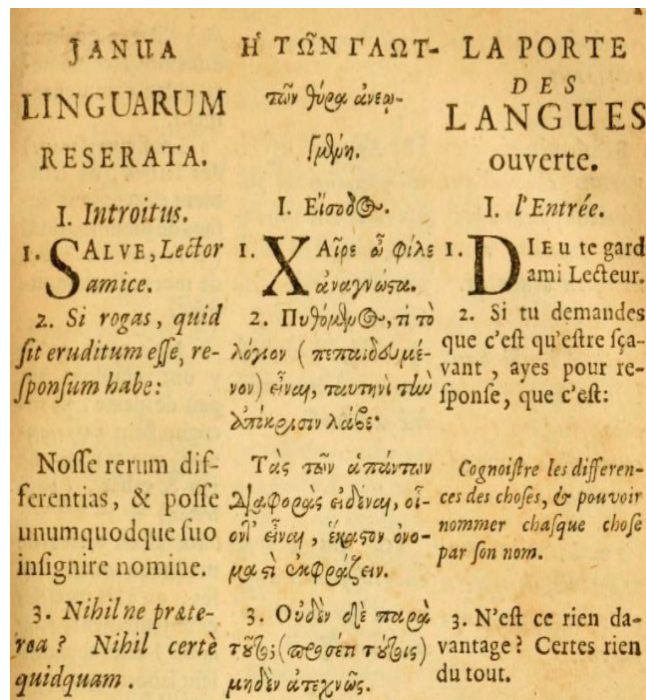 JANUA
LINGUARUM
RESERATA.
I. Introitus.
1. SALVE, Lector
amice.
2. Si rogas, quid
ſit eruditum eſſe, re-
ſponſum habe:
Noſſe rerum dif-
ferentias, & poſſe
unumquodque ſuo
inſignire nomine.
3. Nihil ne præte-
rea? Nihil certè
quidquam.
Η ΤΩ͂Ν ΓΛΩΤ-
τῶν θύρα ἀνεῳ-
γμένη.
I. Εἴσοδος.
1. ΧΑῖρε ὦ φίλε
ἀναγνῶστα.
2. Πυθόμενος, τί τὸ
λόγιον (πεπαιδευμέ-
νον) εἶναι, ταυτηνὶ τὴν
ἀπόκρισιν λάβε·
Τὰς τῶν ἁπάντων
διαφορὰς εἰδέναι, οἷ-
όντ' εἶναι, ἕκαστον ὀνο-
μαστὶ ἐκφράζειν.
3. Οὐδὲν δὲ παρὰ
τοῦτο; (προσέπ τούτοις)
μηδὲν ἀτεχνῶς.
LA PORTE
DES
LANGUES
ouverte.
I. l'Entrée.
1. DIEu te gard
ami Lecteur.
2. Si tu demandes
que c'eſt qu'eſtre ſça-
vant, ayes pour re-
ſponſe, que c'eſt:
Cognoiſtre les differen-
ces des choſes, & pouvoir
nommer chaſque choſe
par ſon nom.
3. N'eſt ce rien da-
vantage? Certes rien
du tout.